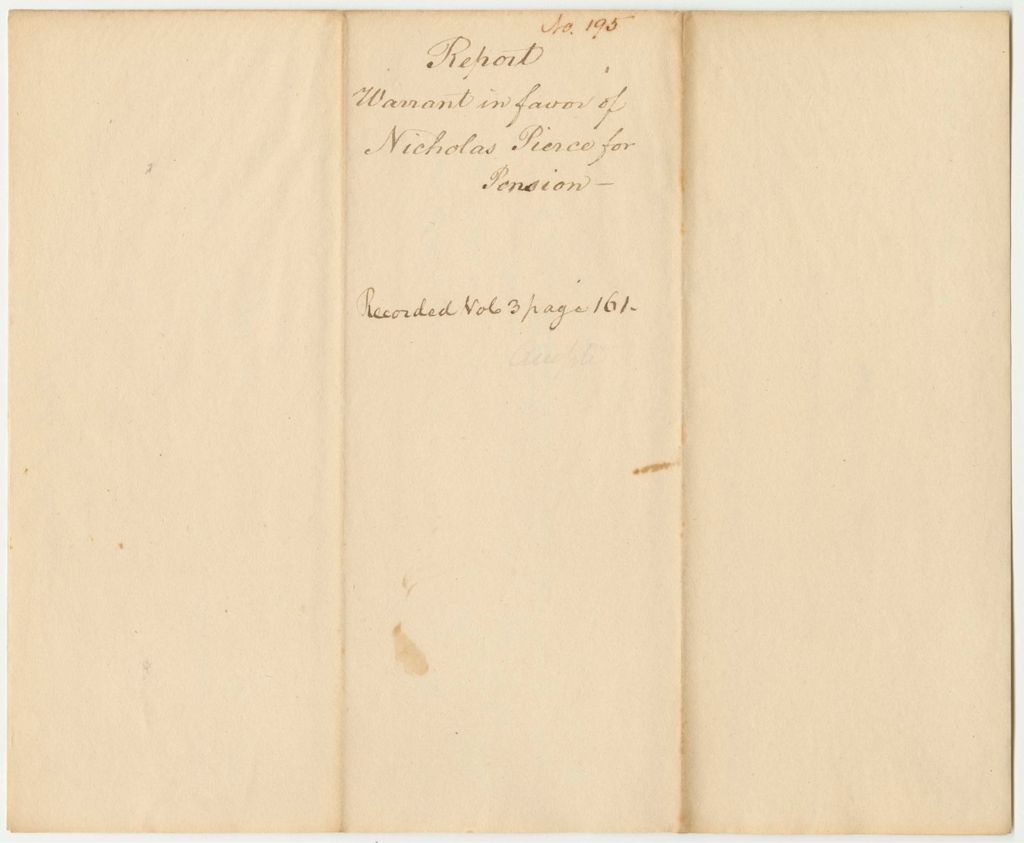 No. 195
Report
Warrant in favor of
Nicholas Pierce for
Pension –
Recorded Vol 3 page 161-